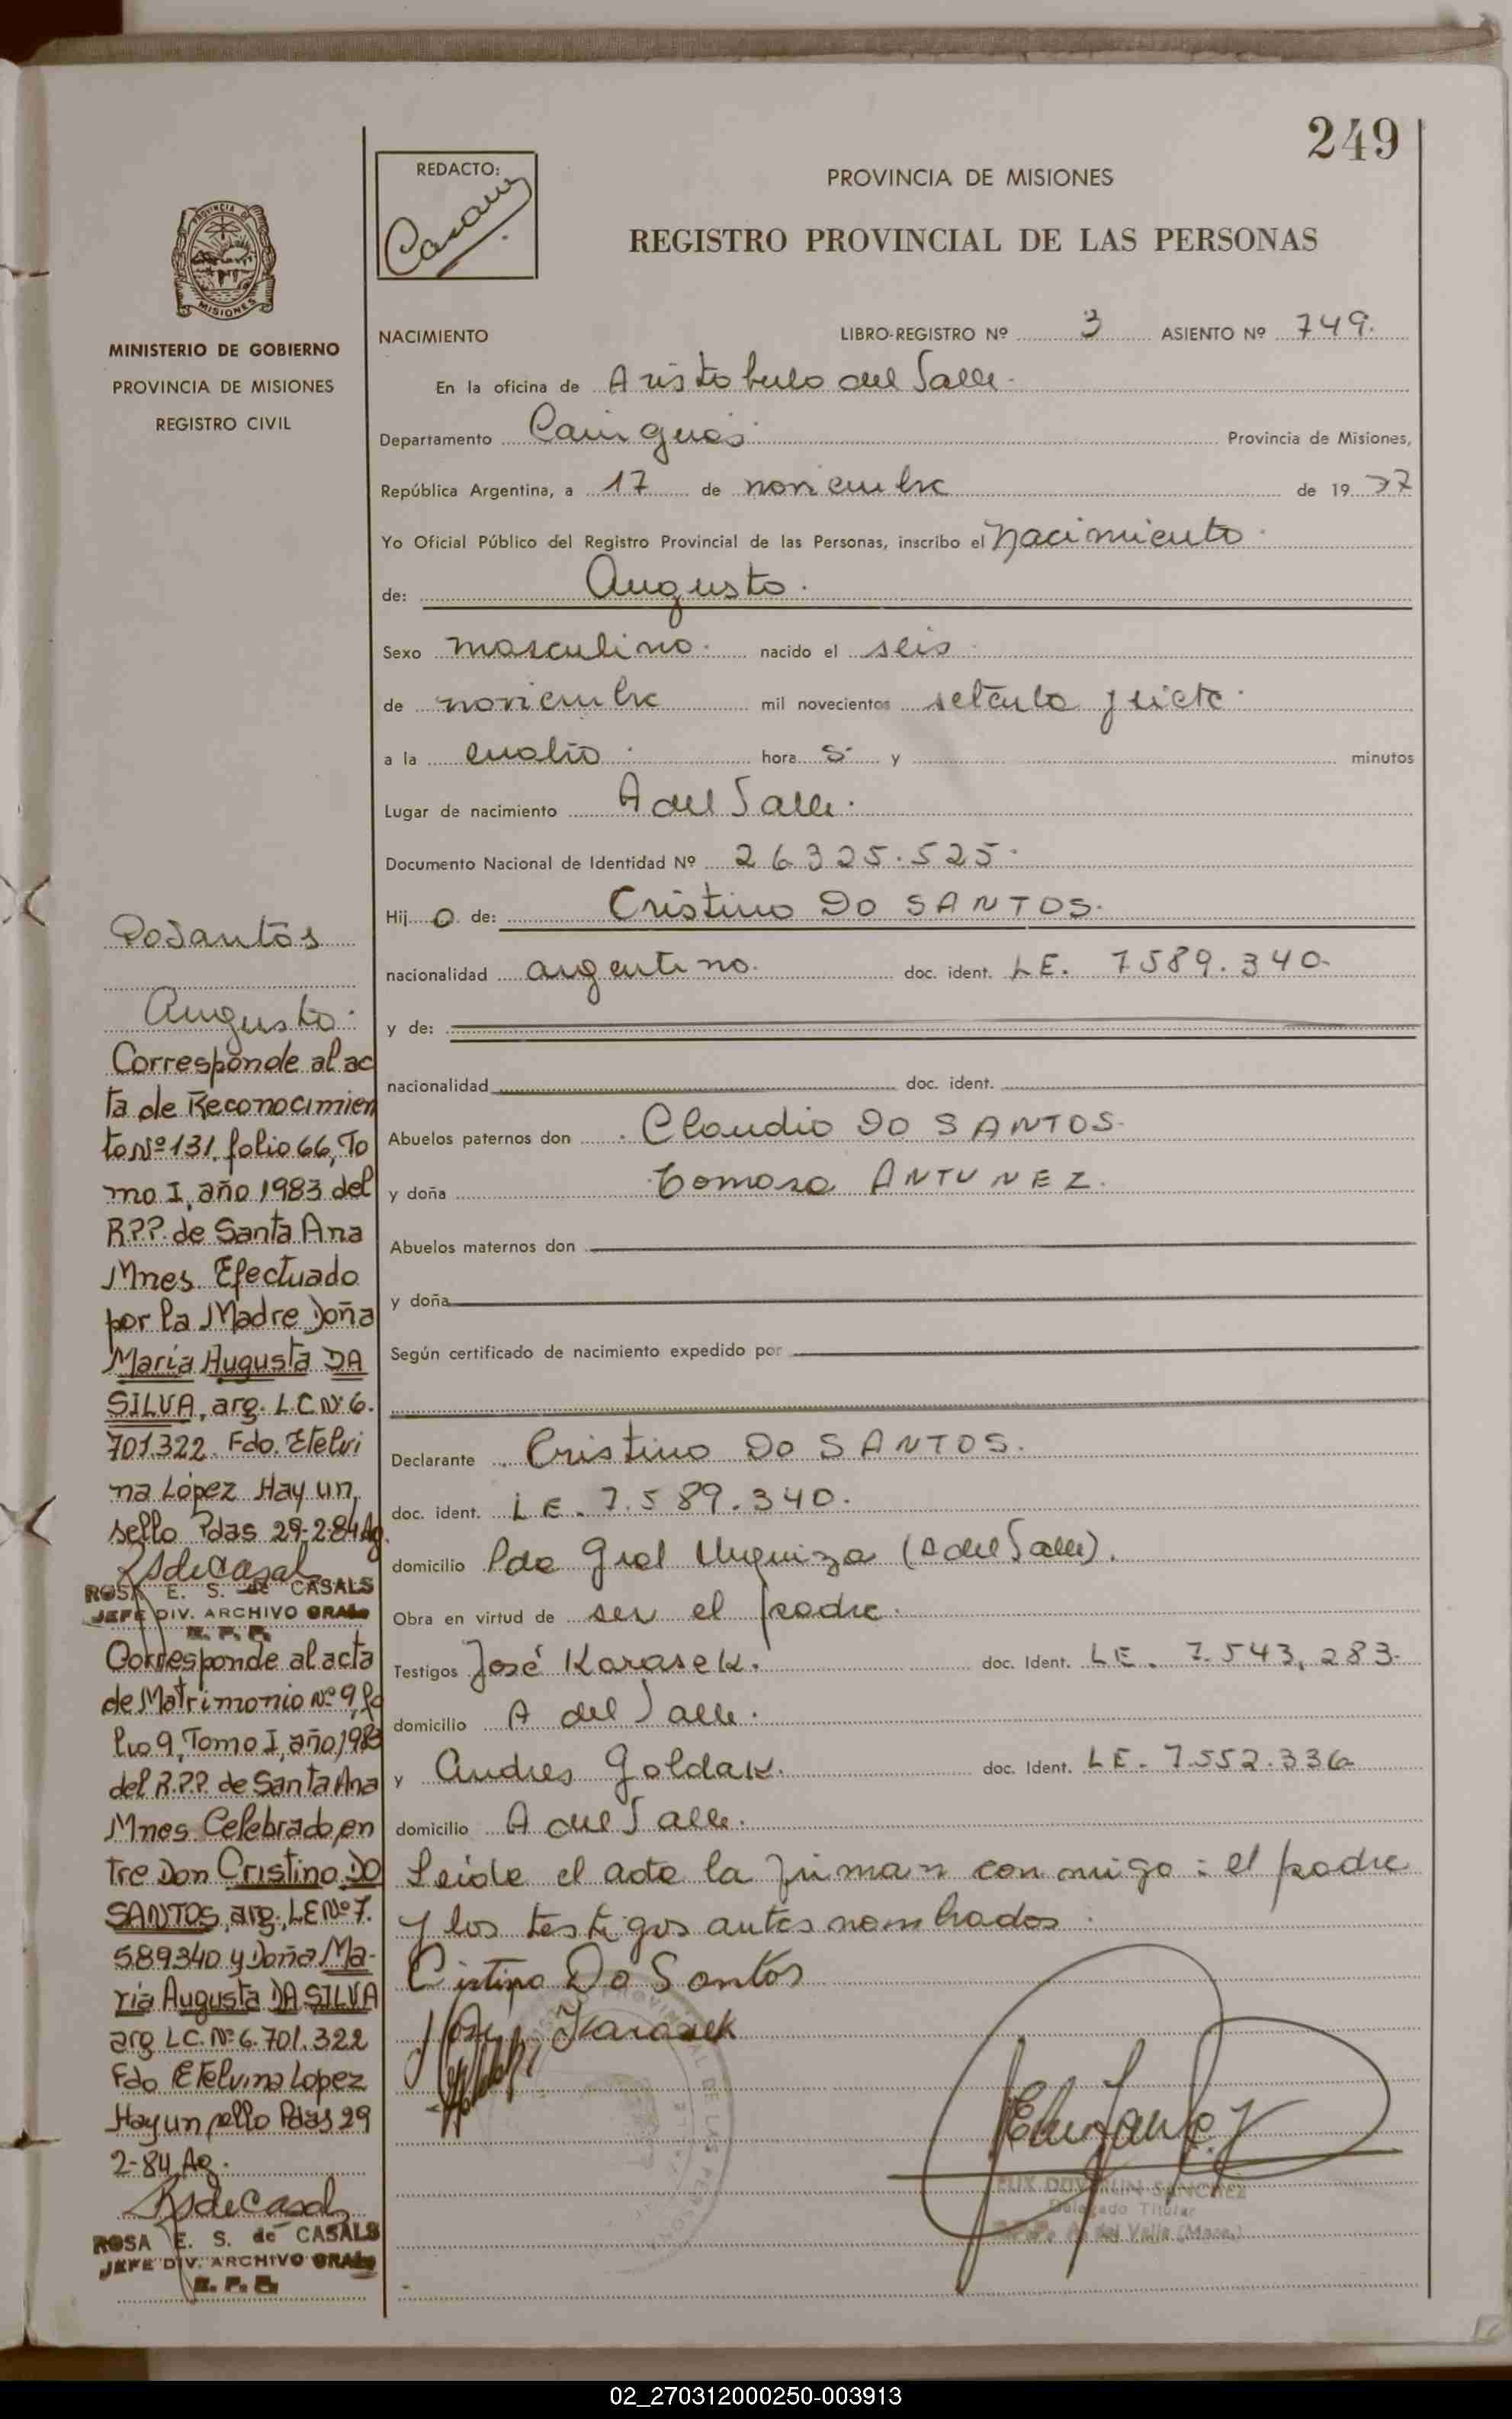 249
REDACTO:
PROVINCIA DE MISIONES
REGISTRO PROVINCIAL DE LAS PERSONAS
MINISTERIO DE GOBIERNO
PROVINCIA DE MISIONES
REGISTRO CIVIL
NACIMIENTO LIBRO-REGISTRO Nº 3 ASIENTO Nº 749.
En la oficina de Aristobulo del Valle.
Departamento Cainguas Provincia de Misiones,
República Argentina, a 17 de noviembre de 19 77
Yo Oficial Público del Registro Provincial de las Personas, inscribo el Nacimiento.
de: Augusto.
Sexo masculino. nacido el seis
de noviembre mil novecientos setenta y siete.
a la cuatro hora s y minutos
Lugar de nacimiento A del Valle.
Documento Nacional de Identidad Nº 26325.525.
Hij o de: Cristino DO SANTOS.
nacionalidad argentino. doc. ident. LE. 7589.340.
y de:
nacionalidad doc. ident.
Abuelos paternos don Claudio DO SANTOS.
y doña Tomasa ANTUNEZ.
Abuelos maternos don
y doña
Según certificado de nacimiento expedido por
Declarante Cristino DO SANTOS.
doc. ident. LE. 7.589.340.
domicilio Pda Gral Urquiza (A del Valle).
Obra en virtud de ser el padre.
Testigos José Karasek. doc. Ident. LE. 7.543.283.
domicilio A del Valle.
y Andres Goldak. doc. Ident. LE. 7.552.336
domicilio A del Valle.
Leida el acta la firman conmigo: el padre
y los testigos antes nombrados.
Cirtino Do Santos
José Karasek
SANCHEZ
Delegado Titular
del Valle (Mnes.)
DoSantos
Augusto.
Corresponde al ac
ta de Reconocimien
to Nº 131, folio 66, To
mo I, año 1983 del
R.P.P. de Santa Ana
Mnes. Efectuado
por la Madre Doña
María Augusta DA
SILVA, arg. L.C Nº 6.
701.322. Fdo. Etelvi
na López Hay un
sello Pdas 29-2-84 Ag.
RSdeCasals
ROSA E. S. de CASALS
JEFE DIV. ARCHIVO GRAL.
R. P. P.
Corresponde al acta
de Matrimonio Nº 9, fo
lio 9, Tomo I, año 1983
del R.P.P. de Santa Ana
Mnes Celebrado en
tre Don Cristino DO
SANTOS, arg., LE Nº 7.
589340 y Doña Ma-
ria Augusta DA SILVA
arg LC. Nº 6.701.322
Fdo Etelvina Lopez
Hay un sello Pdas 29
2-84 Ag.
RSdeCasals
ROSA E. S. de CASALS
JEFE DIV. ARCHIVO GRAL.
R. P. P.
02_270312000250-003913